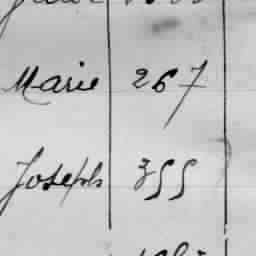 Marie 267
Joseph 355